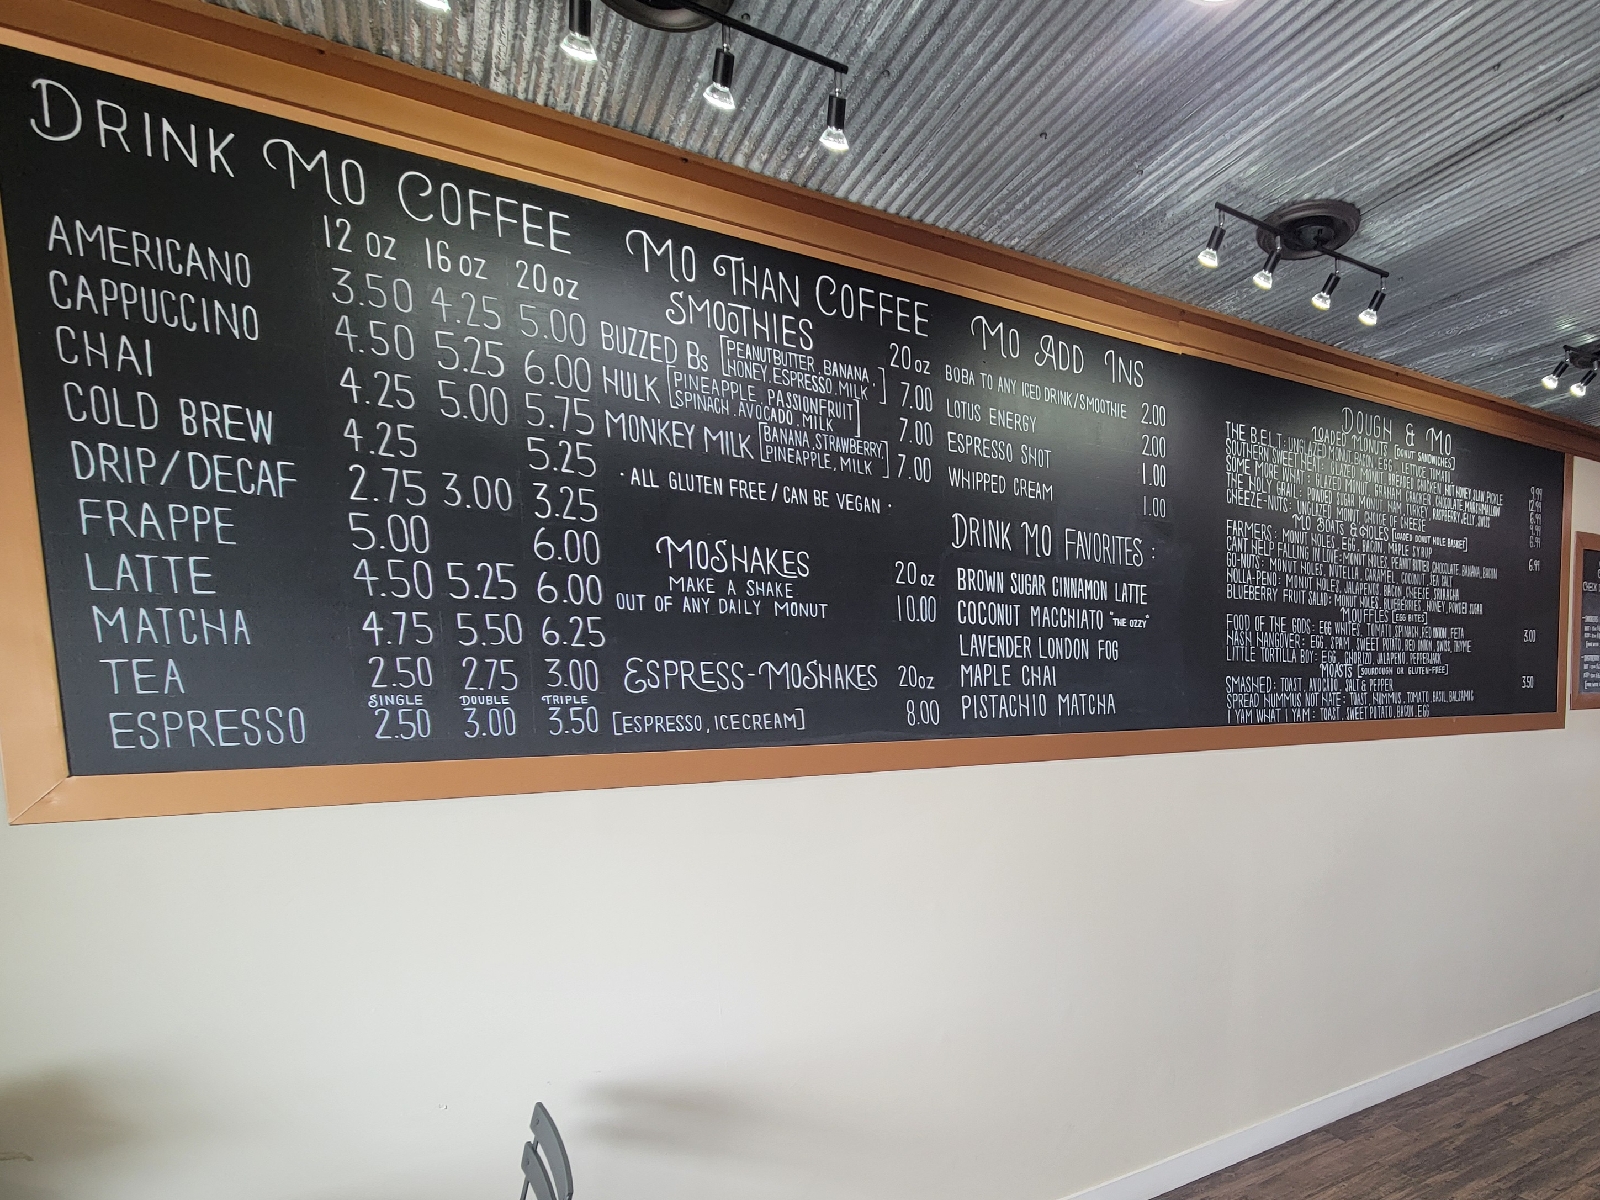 DRINK MO COFFEE
12 oz 16 oz 20 oz
AMERICANO 3.50 4.25 5.00
CAPPUCCINO 4.50 5.25 6.00
CHAI 4.25 5.00 5.75
COLD BREW 4.25 5.25
DRIP/DECAF 2.75 3.00 3.25
FRAPPE 5.00 6.00
LATTE 4.50 5.25 6.00
MATCHA 4.75 5.50 6.25
TEA 2.50 2.75 3.00
SINGLE DOUBLE TRIPLE
ESPRESSO 2.50 3.00 3.50
MO THAN COFFEE
SMOOTHIES 20oz
BUZZED Bs [PEANUTBUTTER, BANANA, HONEY, ESPRESSO, MILK] 7.00
HULK [PINEAPPLE, PASSIONFRUIT, SPINACH, AVOCADO, MILK] 7.00
MONKEY MILK [BANANA, STRAWBERRY, PINEAPPLE, MILK] 7.00
·ALL GLUTEN FREE / CAN BE VEGAN·
MOSHAKES 20oz
MAKE A SHAKE
OUT OF ANY DAILY MONUT 10.00
ESPRESS-MOSHAKES 20oz
[ESPRESSO, ICECREAM] 8.00
MO ADD INS
BOBA TO ANY ICED DRINK/SMOOTHIE 2.00
LOTUS ENERGY 2.00
ESPRESSO SHOT 1.00
WHIPPED CREAM 1.00
DRINK MO FAVORITES:
BROWN SUGAR CINNAMON LATTE
COCONUT MACCHIATO "THE OZZY"
LAVENDER LONDON FOG
MAPLE CHAI
PISTACHIO MATCHA
DOUGH & MO
LOADED MONUTS [DONUT SANDWICHES]
THE B.E.L.T: UNGLAZED MONUT, BACON, EGG, LETTUCE, TOMATO
SOUTHERN SWEET HEAT: GLAZED MONUT, BREADED CHICKEN, HOT HONEY, SLAW, PICKLE
SOME MORE WHAT: GLAZED MONUT, GRAHAM CRACKER, CHOCOLATE, MARSHMALLOW
THE HOLY GRAIL: POWDED SUGAR MONUT, HAM, TURKEY, RASPBERRY JELLY, SWISS
CHEEZE-NUTS: UNGLAZED MONUT, CHOICE OF CHEESE
MO BOATS & HOLES [LOADED DONUT HOLE BASKET]
FARMERS: MONUT HOLES, EGG, BACON, MAPLE SYRUP
CANT HELP FALLING IN LOVE: MONUT HOLES, PEANUT BUTTER, CHOCOLATE, BANANA, BACON
GO-NUTS: MONUT HOLES, NUTELLA, CARAMEL, COCONUT, SEA SALT
HOLLA-PENO: MONUT HOLES, JALAPENOS, BACON, CHEESE, SRIRACHA
BLUEBERRY FRUIT SALAD: MONUT HOLES, BLUEBERRIES, HONEY, POWDER SUGAR
MOUFFLES [EGG BITES]
FOOD OF THE GODS: EGG WHITES, TOMATO, SPINACH, RED ONION, FETA 3.00
HASH HANGOVER: EGG, SPAM, SWEET POTATO, RED ONION, SWISS, THYME
LITTLE TORTILLA BOY: EGG, CHORIZO, JALAPENO, PEPPERJACK
MOASTS [SOURDOUGH OR GLUTEN-FREE]
SMASHED: TOAST, AVOCADO, SALT & PEPPER 3.50
SPREAD HUMMUS NOT HATE: TOAST, HUMMUS, TOMATO, BASIL, BALSAMIC
I YAM WHAT I YAM: TOAST, SWEET POTATO, BACON, EGG